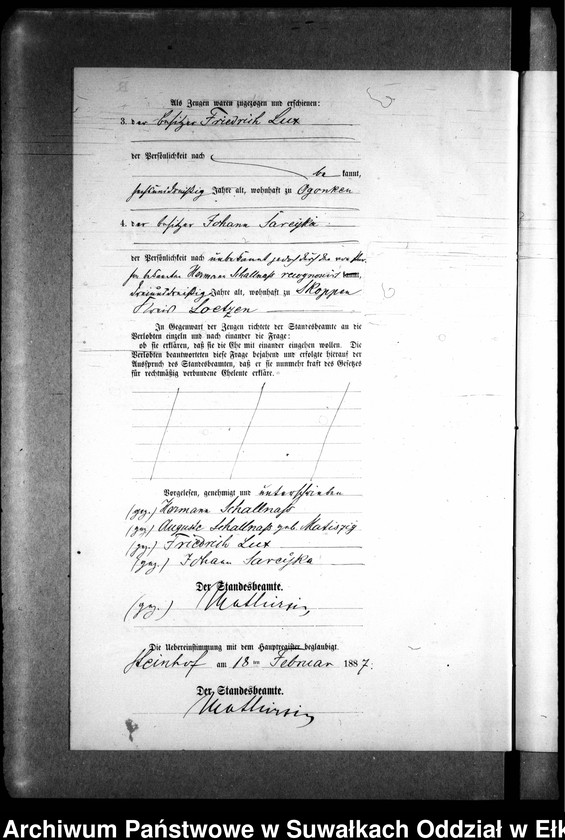 Als Zeugen waren zugezogen und erschienen:
3. der Besitzer Friedrich Lux
der Persönlichkeit nach
be kannt,
Jahre alt, wohnhaft zu Ogonken
4. der Besitzer Johann Sareyka
der Persönlichkeit nach unbekannt jedoch durch den von
bekannten Hermann Schallnass recognoscirt
dreiunddreißig Jahre alt, wohnhaft zu Skoppen
Kreis Loetzen
In Gegenwart der Zeugen richtete der Standesbeamte an die
Verlobten einzeln und nach einander die Frage:
ob sie erklären, daß sie die Ehe mit einander eingehen wollen. Die
Verlobten beantworteten diese Frage bejahend und erfolgte hierauf der
Ausspruch des Standesbeamten, daß er sie nunmehr kraft des Gesetzes
für rechtmäßig verbundene Eheleute erkläre.
Vorgelesen, genehmigt und unterschrieben
(gez.) Hermann Schallnass
(gez.) Auguste Schallnass geb. Matiszig
(gez.) Friedrich Lux
(gez.) Johann Sareyka
Der Standesbeamte.
(gez.)
Die Uebereinstimmung mit dem Hauptregister beglaubigt.
Steinhof am 18 ten Februar 1887.
Der Standesbeamte.
Archiwum Państwowe w Suwałkach Oddział w Ełk